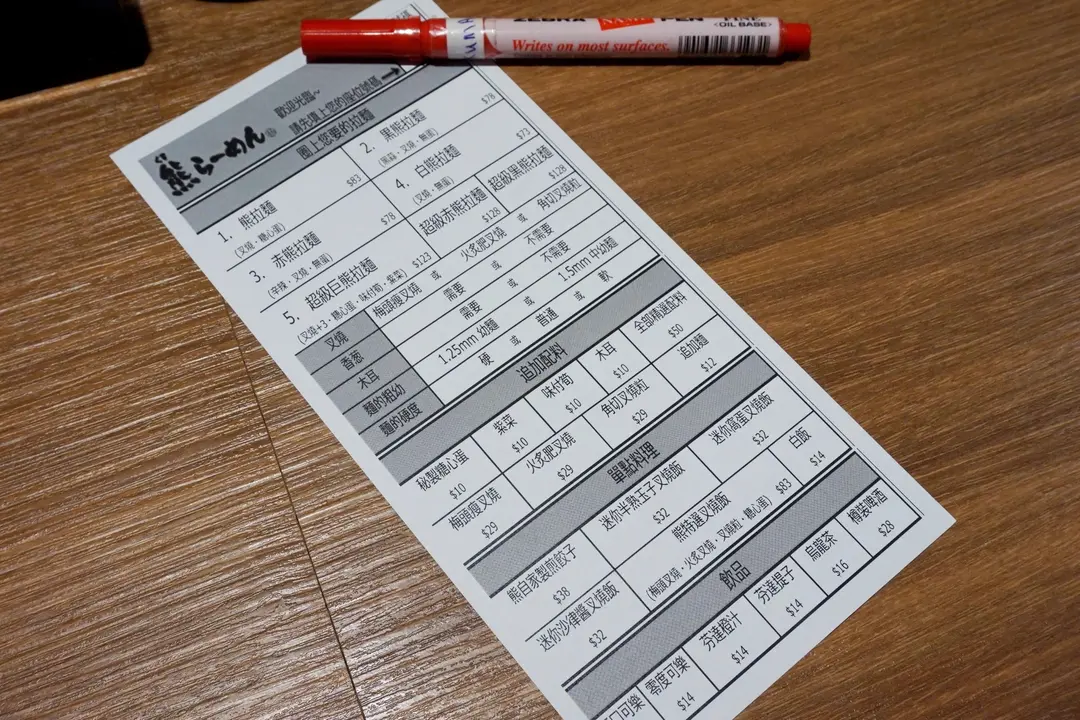 ZEBRA NAME PEN FINE
<OIL BASE>
Writes on most surfaces.
熊らーめん
歡迎光臨~
請先填上您的座位號碼→
圈上您要的拉麵
1. 熊拉麵 $83
(叉燒・糖心蛋)
2. 黑熊拉麵 $78
(黑蒜・叉燒・無蛋)
3. 赤熊拉麵 $78
(辛辣・叉燒・無蛋)
4. 白熊拉麵 $73
(叉燒・無蛋)
5. 超級巨熊拉麵 $123
(叉燒+3・糖心蛋・味付筍・紫菜)
超級赤熊拉麵 $128
超級黑熊拉麵 $128
叉燒 梅頭瘦叉燒 或 火炙肥叉燒 或 角切叉燒粒
香葱 需要 或 不需要
木耳 需要 或 不需要
麵的粗幼 1.25mm 幼麵 或 1.5mm 中幼麵
麵的硬度 硬 或 普通 或 軟
追加配料
秘製糖心蛋 $10
紫菜 $10
味付筍 $10
木耳 $10
全部精選配料 $50
梅頭瘦叉燒 $29
火炙肥叉燒 $29
角切叉燒粒 $29
追加麵 $12
單點料理
熊自家製煎餃子 $38
迷你半熟玉子叉燒飯 $32
迷你窩蛋叉燒飯 $32
迷你沙律醬叉燒飯 $32
熊特選叉燒飯 $83
(梅頭叉燒・火炙叉燒・叉燒粒・糖心蛋)
白飯 $14
飲品
口可樂
零度可樂 $14
芬達橙汁 $14
芬達提子 $14
烏龍茶 $16
樽裝啤酒 $28